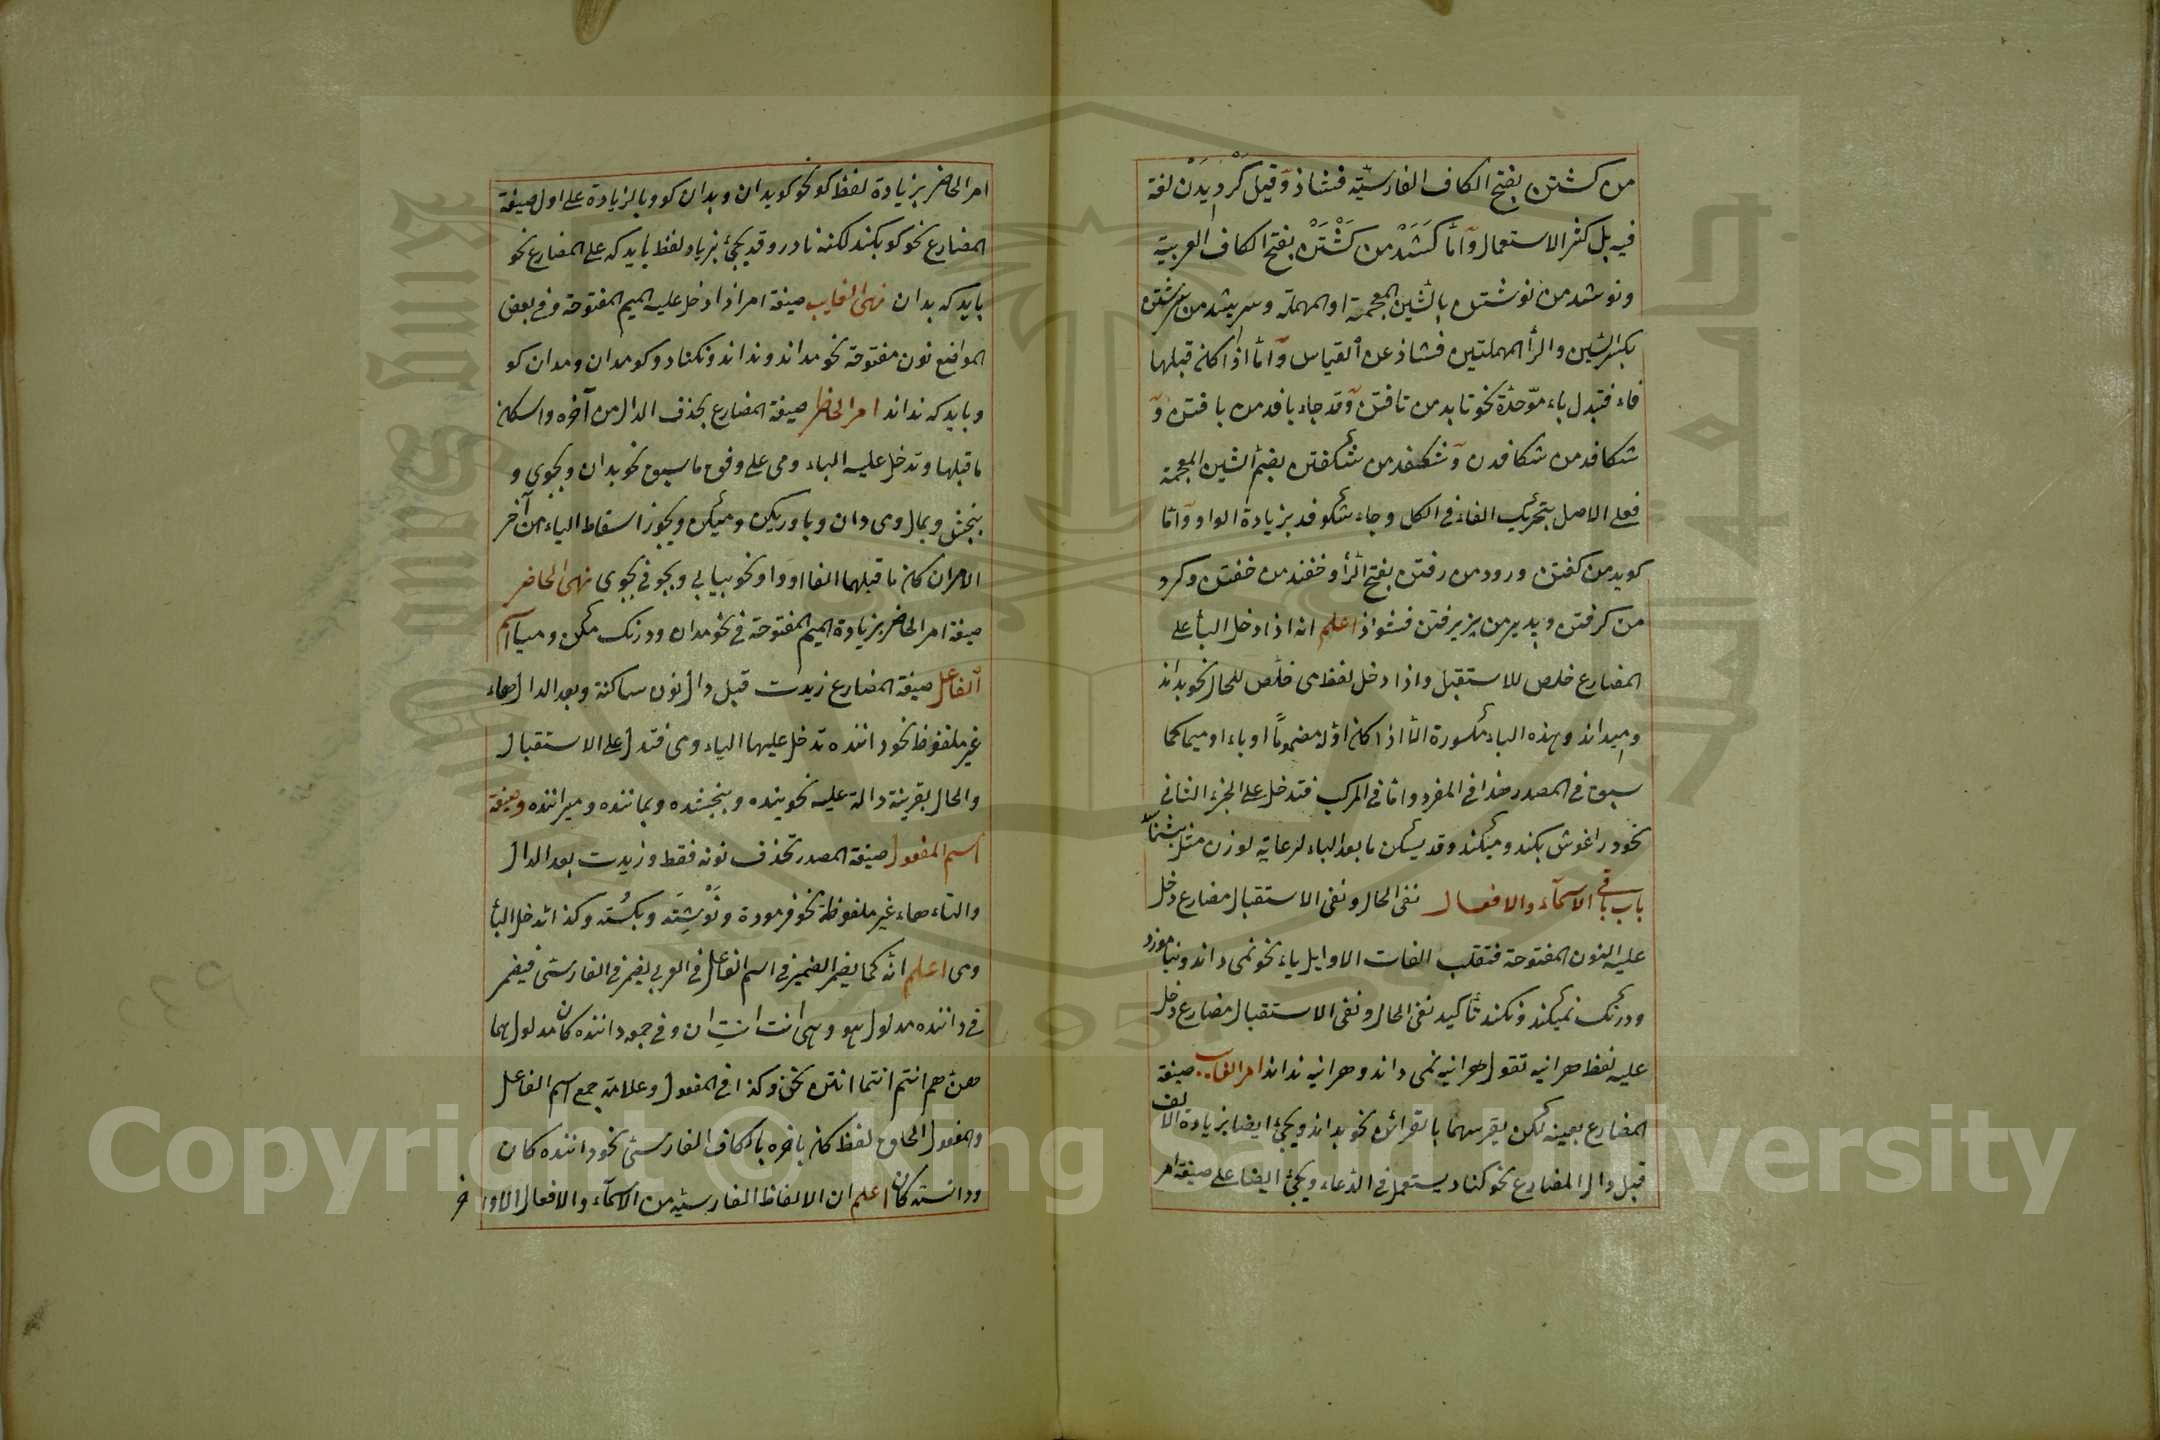 من كشتن بفتح الكاف الفارسيّة فشاذ وقيل كَرْدِيدَنْ لغة
فيه بل كثر الاستعمال وأمّا كَشَدْ من كَشْتَنْ بفتح الكاف العربية
ونوشد من نوشتن بالشين المعجمة او المهملة وسريشد من سرشتن
بكسر الشين والرأ المهملتين فشاذ عن القياس وأمّا اذا كان قبلها
فاء فتبدل باء موّحدة نحو تابد من تافتن وقد جاء بافد من بافتن و
شكافد من شكافدن وشكفد من شكفتن بضم الشين المعجمة
فعلى الاصل بتحريك الفاء فى الكل وجاء شكوفد بزيادة الواو وامّا
كويد من كفتن ورود من رفتن بفتح الرأ وخفند من خفتن وكرد
من كرفتن وپديرمن پزيرفتن فشواذ اعلم انه اذا دخل البأ على
المضارع خلص للاستقبل واذا دخل لفظ مى خلص للحال نحو بداند
وميداند وهذه الباء مكسورة الّا اذا كان اوّله مضموماً او باء او ميما كما
سبق فى المصدر هذا فى المفرد وامّا فى المركب فتدخل على الجزء الثانى
نحو در اغوش بكند وميكند وقد يسكن ما بعد الباء لرعاية لوزن مثل بشناسد
باب باقى الاسمآء والافعال نفى الحال ونفى الاستقبال مضارع دخل
عليه النون المفتوحة فتقلب الفات الاوايل ياء نحو نمى داند ونيامورد
ودرنك نميكند ونكند تأكيد نفى الحال ونفى الاستقبال مضارع دخل
عليه لفظ هرانيه تقول هرانيه نمى داند وهرانيه نداند امر الغايب صيغة
المضارع بعينه لكن يفرسهما بالقرائن نحو بداند ويجئ ايضا بزيادة الالف
قبل دال المضارع نحو كناد يستعمل فى الدّعاء ويجئ ايضا على صيغة امر
امر الحاضر بزيادة لفظ كو نحو كو بدان وبدان كو وبالزيادة على اول صيغة
المضارع نحو كو بكند لكنه نادر وقد يجئ بزياد لفظ بايد كه على المضارع نحو
بايد كه بدان نهى الغايب صيغة امر اذا دخل عليه الميم المفتوحة وفى بعض
المواضع نون مفتوحة نحو مداند ونداند ونكناد وكو مدان ومدان كو
وبايد كه نداند امر الحاظر صيغة المضارع بحذف الدال من آخره واسكان
ما قبلها وتدخل عليه الباء ومى على وفق ما سبق نحو بدان وبجوى و
ببخش وبمال ومى دان وباور بكن وميكن ويجوز اسقاط الياء من آخر
الامر ان كان ما قبلها الفا او واو نحو بيا بى وبجو فى بجوى نهى الحاضر
صيغة امر الحاضر بزيادة الميم المفتوحة فى نحو مدان ودرنك مكن وميا اسم
الفاعل صيغة المضارع زيدت قبل دال نون ساكنة وبعد الدال هاء
غير ملفوظ نحو داننده تدخل عليها الباء ومى فتدل على الاستقبال
والحال بقرينة دالة عليه نحو بينده وببخشنده وبماننده وميراننده وصيغة
اسم المفعول صيغة المصدر تحذف نونه فقط وزيدت بعد الدال
والتاء هاء غير ملفوظة نحو فرمودة ونَوْشِتَه وبكسُته وكذا تدخل البأ
ومى اعلم انّه كما يضمر الضمير فى اسم الفاعل فى العربى يضمر فى الفارسى فيضمر
فى داننده مدلول هو وهى انت انتِ ان وفى جمعه داننده كان مدلول هما
هن هم انتم انتما انتن نحن وكذا فى المفعول وعلامة جمع اسم الفاعل
والمفعول الحاق لفظ كان باخره بالكاف الفارسى نحو داننده كان
ودانسته كان اعلم ان الالفاظ الفارسيّة من الاسمآء والافعال الاوا
خر
Copyright © King Saud University
1957